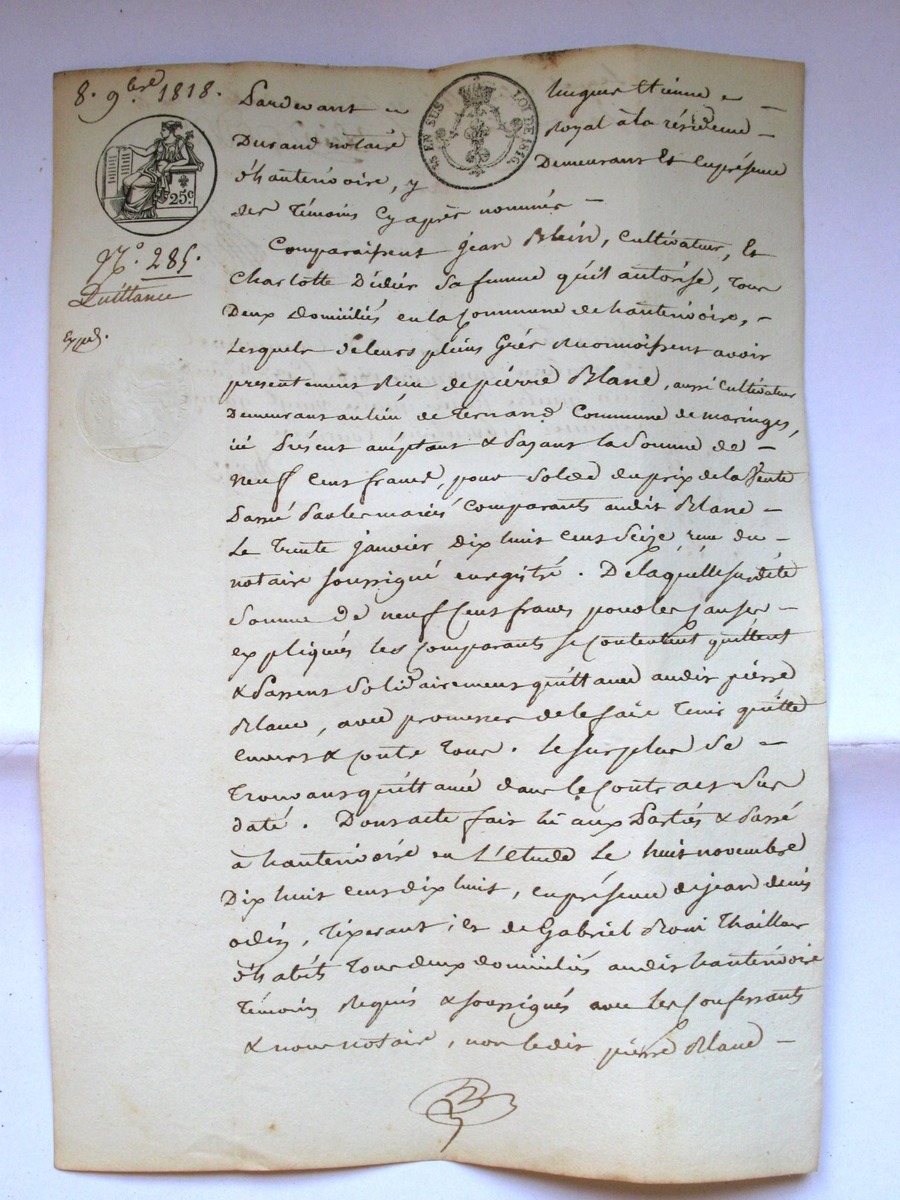 8. 9.bre 1818.
25c
N.º 285.
Quittance
expd.
EN SUS LOI DE 1816
Pardevant Me hugues Etienne
Durand notaire Royal à la résidence
d'hauterivoire, y Demeurant Et en présence
des Témoins Cy après nommés
Comparaissent jean Blein, Cultivateur, Et
Charlotte Didier Sa femme qu'il autorise, Tous
Deux domiciliés en la Commune de hauterivoire,
Lesquels de leurs pleins Grés Reconnoissent avoir
présentement Reçu de pierre Blanc, aussi Cultivateur
Demeurant au lieu de Ternand Commune de maringes,
ici Présent acceptant & Payant la Somme de
neuf Cent francs, pour Solde du prix de la Vente
Passée Par les mariés Comparants audit Blanc
Le Trente janvier Dix huit Cent Seize reçue du
notaire Soussigné enregistré. De laquelle Susdite
Somme de neuf Cent francs pour les Causes
expliquées Les Comparants Se Contentent quittent
& Passent Solidairement quittance audit pierre
Blanc, avec promesse de le faire Tenir quitte
Envers & Contre Tous. Le Surplus Se
Trouvant quittancé dans le Contract Sus
daté. Dont acte fait lû aux Parties & Passé
à hauterivoire en L'étude Le huit novembre
Dix huit Cent dix huit, en présence de jean denis
odin, Tixerant; et de Gabriel Thailleur
d'habits Tous deux domiciliés audit hauterivoire
Témoins Requis & Soussignés avec Les Confessants
& nous notaire, non Ledit pierre Blanc